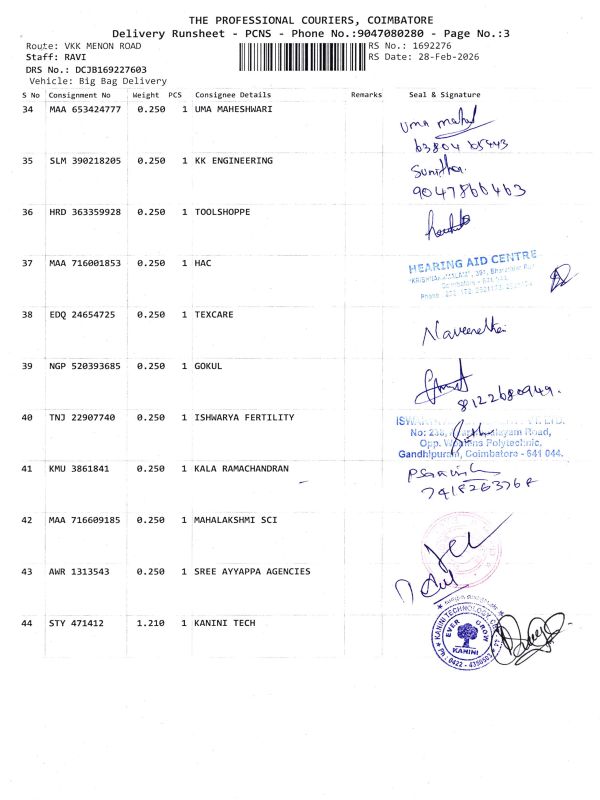 THE PROFESSIONAL COURIERS, COIMBATORE
Delivery Runsheet - PCNS - Phone No.:9047080280 - Page No.:3
Route: VKK MENON ROAD RS No.: 1692276
Staff: RAVI RS Date: 28-Feb-2026
DRS No.: DCJB169227603
Vehicle: Big Bag Delivery
S No Consignment No Weight PCS Consignee Details Remarks Seal & Signature
34 MAA 653424777 0.250 1 UMA MAHESHWARI
uma
35 SLM 390218205 0.250 1 KK ENGINEERING
Sunitha
9047860463
36 HRD 363359928 0.250 1 TOOLSHOPPE
37 MAA 716001853 0.250 1 HAC
HEARING AID CENTRE
Phone
38 EDQ 24654725 0.250 1 TEXCARE
39 NGP 520393685 0.250 1 GOKUL
8122680949.
40 TNJ 22907740 0.250 1 ISHWARYA FERTILITY
No: Road,
Opp. Womens Polytechnic,
Gandhipuram, Coimbatore - 641 044.
41 KMU 3861841 0.250 1 KALA RAMACHANDRAN
42 MAA 716609185 0.250 1 MAHALAKSHMI SCI
43 AWR 1313543 0.250 1 SREE AYYAPPA AGENCIES
44 STY 471412 1.210 1 KANINI TECH
KANINI TECHNOLOGY
EVER GROW
KANINI